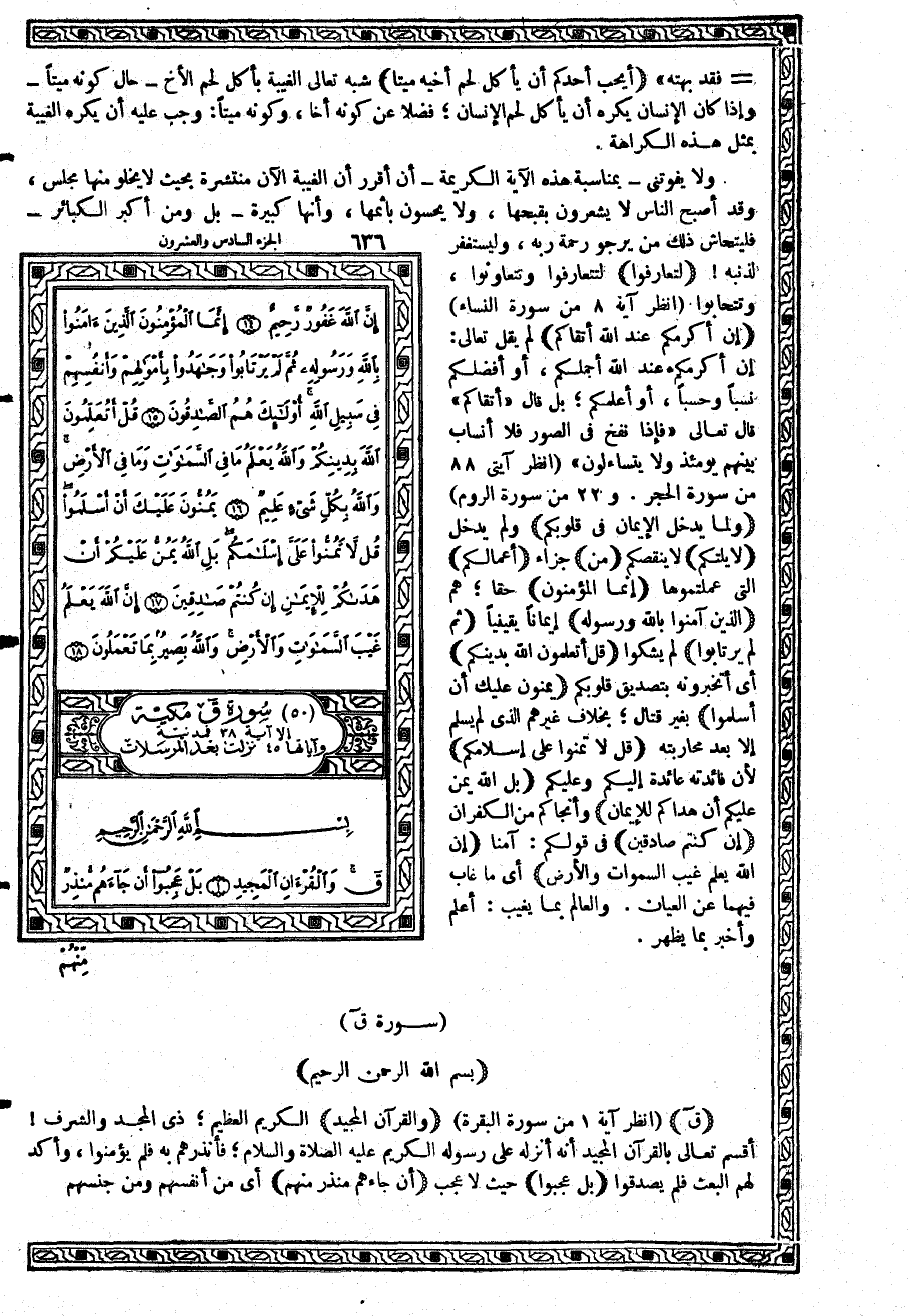 = فقد بهته» (أيحب أحدكم أن يأكل لحم أخيه ميتا) شبه تعالى الغيبة بأكل لحم الأخ – حال كونه ميتاً –
وإذا كان الإنسان يكره أن يأكل لحم الإنسان ؛ فضلا عن كونه أخا ، وكونه ميتاً: وجب عليه أن يكره الغيبة
بمثل هذه الكراهة .
ولا يفوتنى – بمناسبة هذه الآية الكريمة – أن أقرر أن الغيبة الآن منتشرة بحيث لا يخلو منها مجلس ،
وقد أصبح الناس لا يشعرون بقبحها ، ولا يحسون بأثمها ، وأنها كبيرة – بل ومن أكبر الكبائر –
فليتحاش ذلك من يرجو رحمة ربه ، وليستغفر
لذنبه ! (لتعارفوا) لتتعارفوا وتتعاونوا ،
وتتحابوا (انظر آية ٨ من سورة النساء)
(إن أكرمكم عند الله أتقاكم) لم يقل تعالى:
إن أكرمكم عند الله أجملكم ، أو أفضلكم
نسباً وحسباً ، أو أعلمكم ؛ بل قال «أتقاكم»
قال تعالى «فإذا نفخ فى الصور فلا أنساب
بينهم يومئذ ولا يتساءلون» (انظر آيتى ٨٨
من سورة الحجر . و ٢٢ من سورة الروم)
(ولما يدخل الإيمان فى قلوبكم) ولم يدخل
(لايلتكم) لا ينقصكم (من) جزاء (أعمالكم)
التى عملتموها (إنما المؤمنون) حقا ؛ هم
(الذين آمنوا بالله ورسوله) إيماناً يقينياً (ثم
لم يرتابوا) لم يشكوا (قل أتعلمون الله بدينكم)
أى أتخبرونه بتصديق قلوبكم (يمنون عليك أن
أسلموا) بغير قتال ؛ بخلاف غيرهم الذى لم يسلم
إلا بعد محاربته (قل لا تمنوا على إسلامكم)
لأن فائدته عائدة إليكم وعليكم (بل الله يمن
عليكم أن هداكم للإيمان) وأنجاكم من الكفران
(إن كنتم صادقين) فى قولكم : آمنا (إن
الله يعلم غيب السموات والأرض) أى ما غاب
فيهما عن العيان . والعالم بما يغيب : أعلم
وأخبر بما يظهر .
٦٣٦ الجزء السادس والعشرون
إِنَّ ٱللَّهَ غَفُورٌ رَّحِيمٌ ١٤ إِنَّمَا ٱلْمُؤْمِنُونَ ٱلَّذِينَ ءَامَنُوا۟
بِٱللَّهِ وَرَسُولِهِۦ ثُمَّ لَمْ يَرْتَابُوا۟ وَجَٰهَدُوا۟ بِأَمْوَٰلِهِمْ وَأَنفُسِهِمْ
فِى سَبِيلِ ٱللَّهِ ۚ أُو۟لَٰٓئِكَ هُمُ ٱلصَّٰدِقُونَ ١٥ قُلْ أَتُعَلِّمُونَ
ٱللَّهَ بِدِينِكُمْ وَٱللَّهُ يَعْلَمُ مَا فِى ٱلسَّمَٰوَٰتِ وَمَا فِى ٱلْأَرْضِ ۚ
وَٱللَّهُ بِكُلِّ شَىْءٍ عَلِيمٌ ١٦ يَمُنُّونَ عَلَيْكَ أَنْ أَسْلَمُوا۟ ۖ
قُل لَّا تَمُنُّوا۟ عَلَىَّ إِسْلَٰمَكُم ۖ بَلِ ٱللَّهُ يَمُنُّ عَلَيْكُمْ أَنْ
هَدَىٰكُمْ لِلْإِيمَٰنِ إِن كُنتُمْ صَٰدِقِينَ ١٧ إِنَّ ٱللَّهَ يَعْلَمُ
غَيْبَ ٱلسَّمَٰوَٰتِ وَٱلْأَرْضِ ۚ وَٱللَّهُ بَصِيرٌۢ بِمَا تَعْمَلُونَ ١٨
(٥٠) سورة ق مكية
إلا آية ٣٨ فمدنية
وآياتها ٤٥ نزلت بعد المرسلات
بِسْمِ ٱللَّهِ ٱلرَّحْمَٰنِ ٱلرَّحِيمِ
قٓ ۚ وَٱلْقُرْءَانِ ٱلْمَجِيدِ ١ بَلْ عَجِبُوٓا۟ أَن جَآءَهُم مُّنذِرٌ
مِّنْهُمْ
(سورة قٓ)
(بسم الله الرحمن الرحيم)
(قٓ) (انظر آية ١ من سورة البقرة) (والقرآن المجيد) الكريم العظيم ؛ ذى المجد والشرف !
أقسم تعالى بالقرآن المجيد أنه أنزله على رسوله الكريم عليه الصلاة والسلام ؛ فأنذرهم به فلم يؤمنوا ، وأكد
لهم البعث فلم يصدقوا (بل عجبوا) حيث لا عجب (أن جاءهم منذر منهم) أى من أنفسهم ومن جنسهم